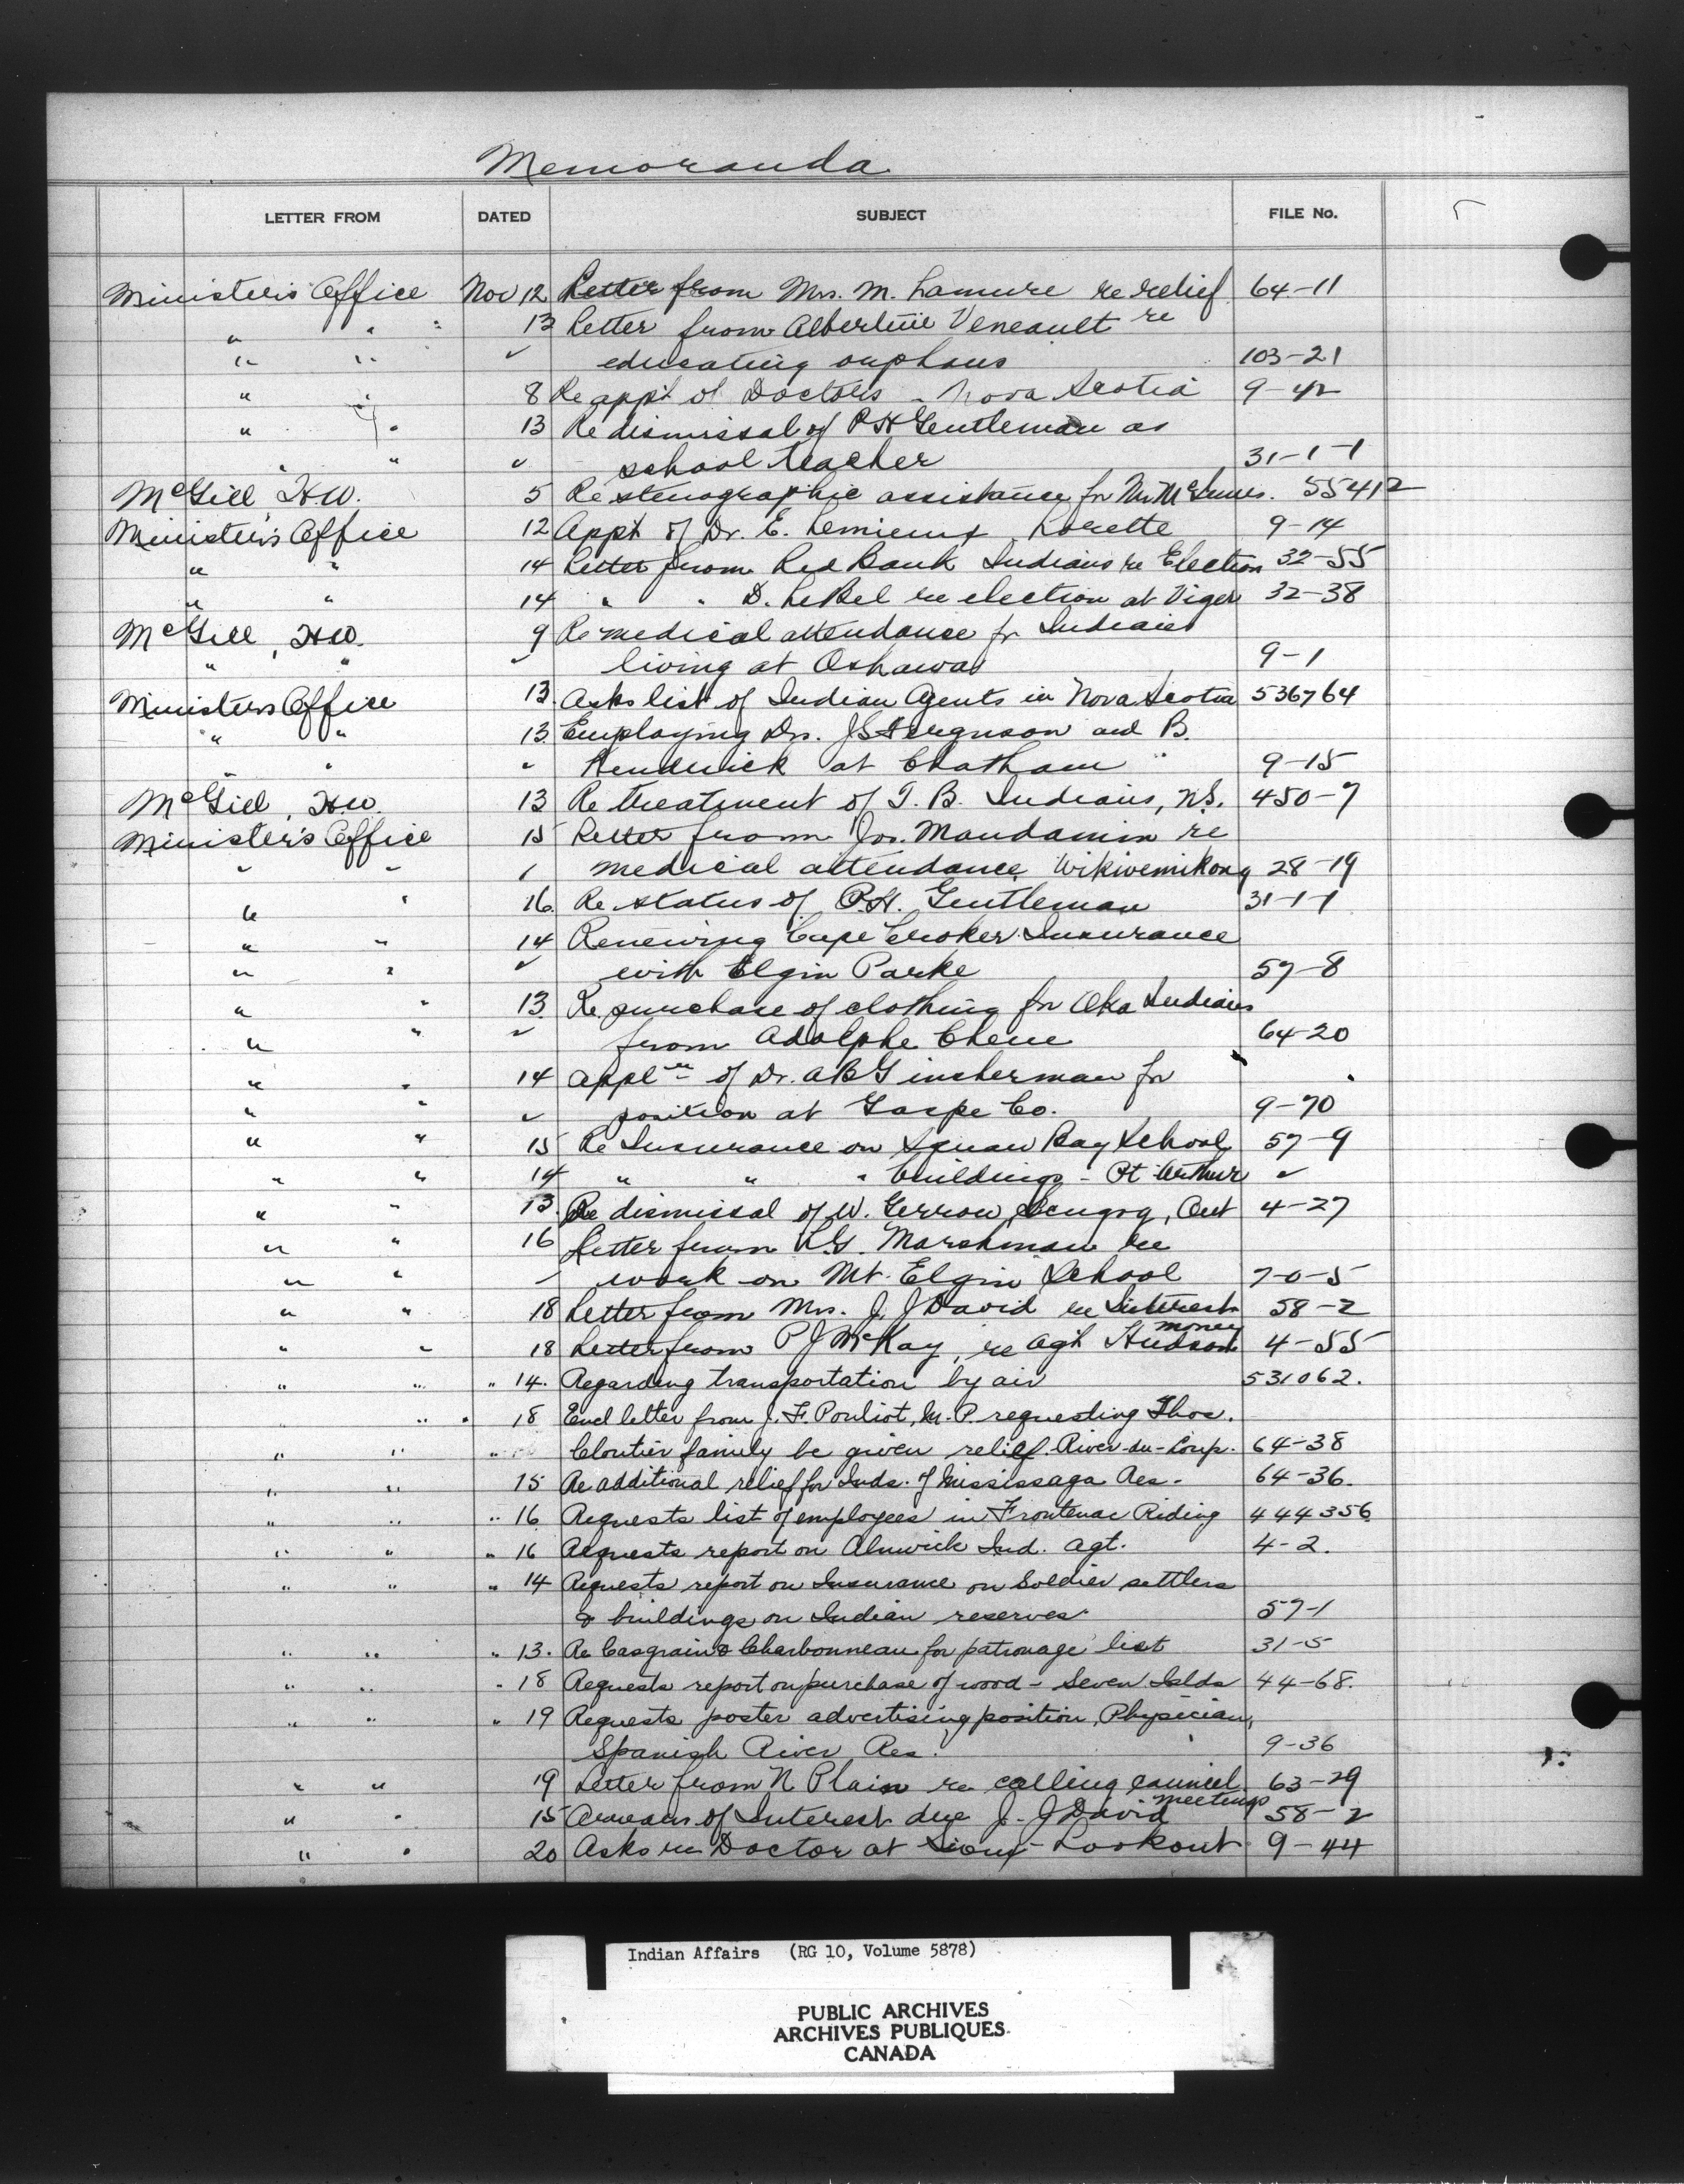 Memoranda
LETTER FROM DATED SUBJECT FILE No.
Minister's Office Nov 12 Letter from Mrs. M. Lamure re relief 64-11
" " 13 Letter from Albertine Veneault re
" " " educating orphans 103-21
" " 8 Re appt of Doctors - Nova Scotia 9-42
" " 13 Re dismissal of P H Gentleman as
" " " school teacher 31-1-1
McGill, H.W. 5 Re stenographic assistance for Mr McInnes. 55412
Minister's Office 12 Appt of Dr. E. Lemieux Lorette 9-14
" " 14 Letter from Red Bank Indians re Election 32-55
" " 14 " " D. LeBel re election at Viger 32-38
McGill, H.W. 9 Re medical attendance for Indians
" " " living at Oshawa 9-1
Ministers Office 13. Asks list of Indian Agents in Nova Scotia 536764
" " 13. Employing Drs. J S Ferguson and B.
" " " Kendrick at Chatham 9-15
McGill, H.W. 13 Re treatment of T. B. Indians, N.S. 450-7
Minister's Office 15 Letter from Jos. Mandamin re
" " " medical attendance Wikwemikong 28-19
" " 16. Re status of P.H. Gentleman 31-1-1
" " 14 Renewing Cape Croker Insurance
" " " with Elgin Parke 57-8
" " 13. Re purchase of clothing for Oka Indians
" " " from Adolphe Chene 64-20
" " 14 Applcn of Dr. A B Ginsherman for
" " " position at Gaspe Co. 9-70
" " 15 Re Insurance on Squaw Bay School 57-9
" " 14 " " " buildings - Pt Arthur "
" " 13. Re dismissal of W. Gerrow, Scugog, Ont 4-27
" " 16 Letter from L.G. Marshman re
" " " work on Mt. Elgin School 7-0-5
" " 18 Letter from Mrs. J. J David re Interest money 58-2
" " 18 Letter from P J McKay, re agt Hudson 4-55
" " " 14. Regarding transportation by air 531062.
" " " 18 Encl letter from J. F. Pouliot, M.P. requesting Thos.
" " " Cloutier family be given relief. River-du-Loup. 64-38
" " 15 Re additional relief for Inds. of Mississaga Res. 64-36.
" " " 16 Requests list of employees in Frontenac Riding 444356
" " " 16 Requests report on Alnwick Ind. Agt. 4-2.
" " " 14 Requests report on Insurance on Soldier settlers
& buildings on Indian reserves 57-1
" " " 13. Re Casgrain & Charbonneau for patronage list 31-5
" " " 18 Requests report on purchase of wood - Seven Islds 44-68.
" " " 19 Requests poster advertising position, Physician,
Spanish River Res. 9-36
" " 19 Letter from N Plain re calling council meetings 63-29
" " 15 Arrears of Interest due J. J David 58-2
" " 20 Asks re Doctor at Sioux Lookout 9-44
Indian Affairs (RG 10, Volume 5878)
PUBLIC ARCHIVES
ARCHIVES PUBLIQUES
CANADA